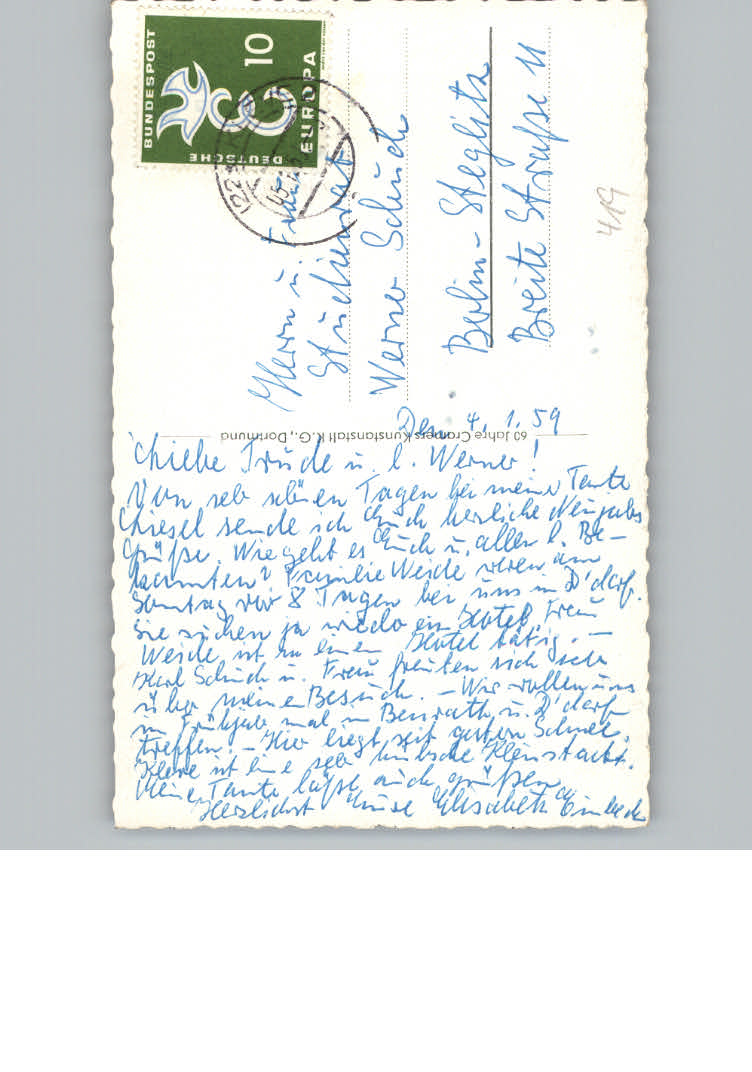 DEUTSCHE
BUNDESPOST
10
EUROPA
Herrn u. Frau
Studienrat
Werner Schuch
Berlin-Steglitz
Breite Straße 11
419
60 Jahre Cramers Kunstanstalt K.G., Dortmund
Den 4. 1. 59
Liebe Trude u. l. Werner!
Von sehr schönen Tagen bei meiner Tante
Liesel sende ich Euch herzliche Neujahrs
Grüße. Wie geht es Euch u. allen l. Be-
kannten? Familie Weide waren am
Sonntag vor 8 Tagen bei uns in D'dorf.
Sie suchen ja wieder ein Hotel. Frau
Weide ist in einem Hotel tätig. —
Karl Schuch u. Frau freuten sich sehr
über meinen Besuch. — Wir wollen uns
im Frühjahr mal in Benrath u. D'dorf
treffen. — Hier liegt seit gestern Schnee.
Kleve ist eine sehr hübsche Kleinstadt.
Meine Tante läßt auch grüßen.
Herzlichst Eure Elisabeth